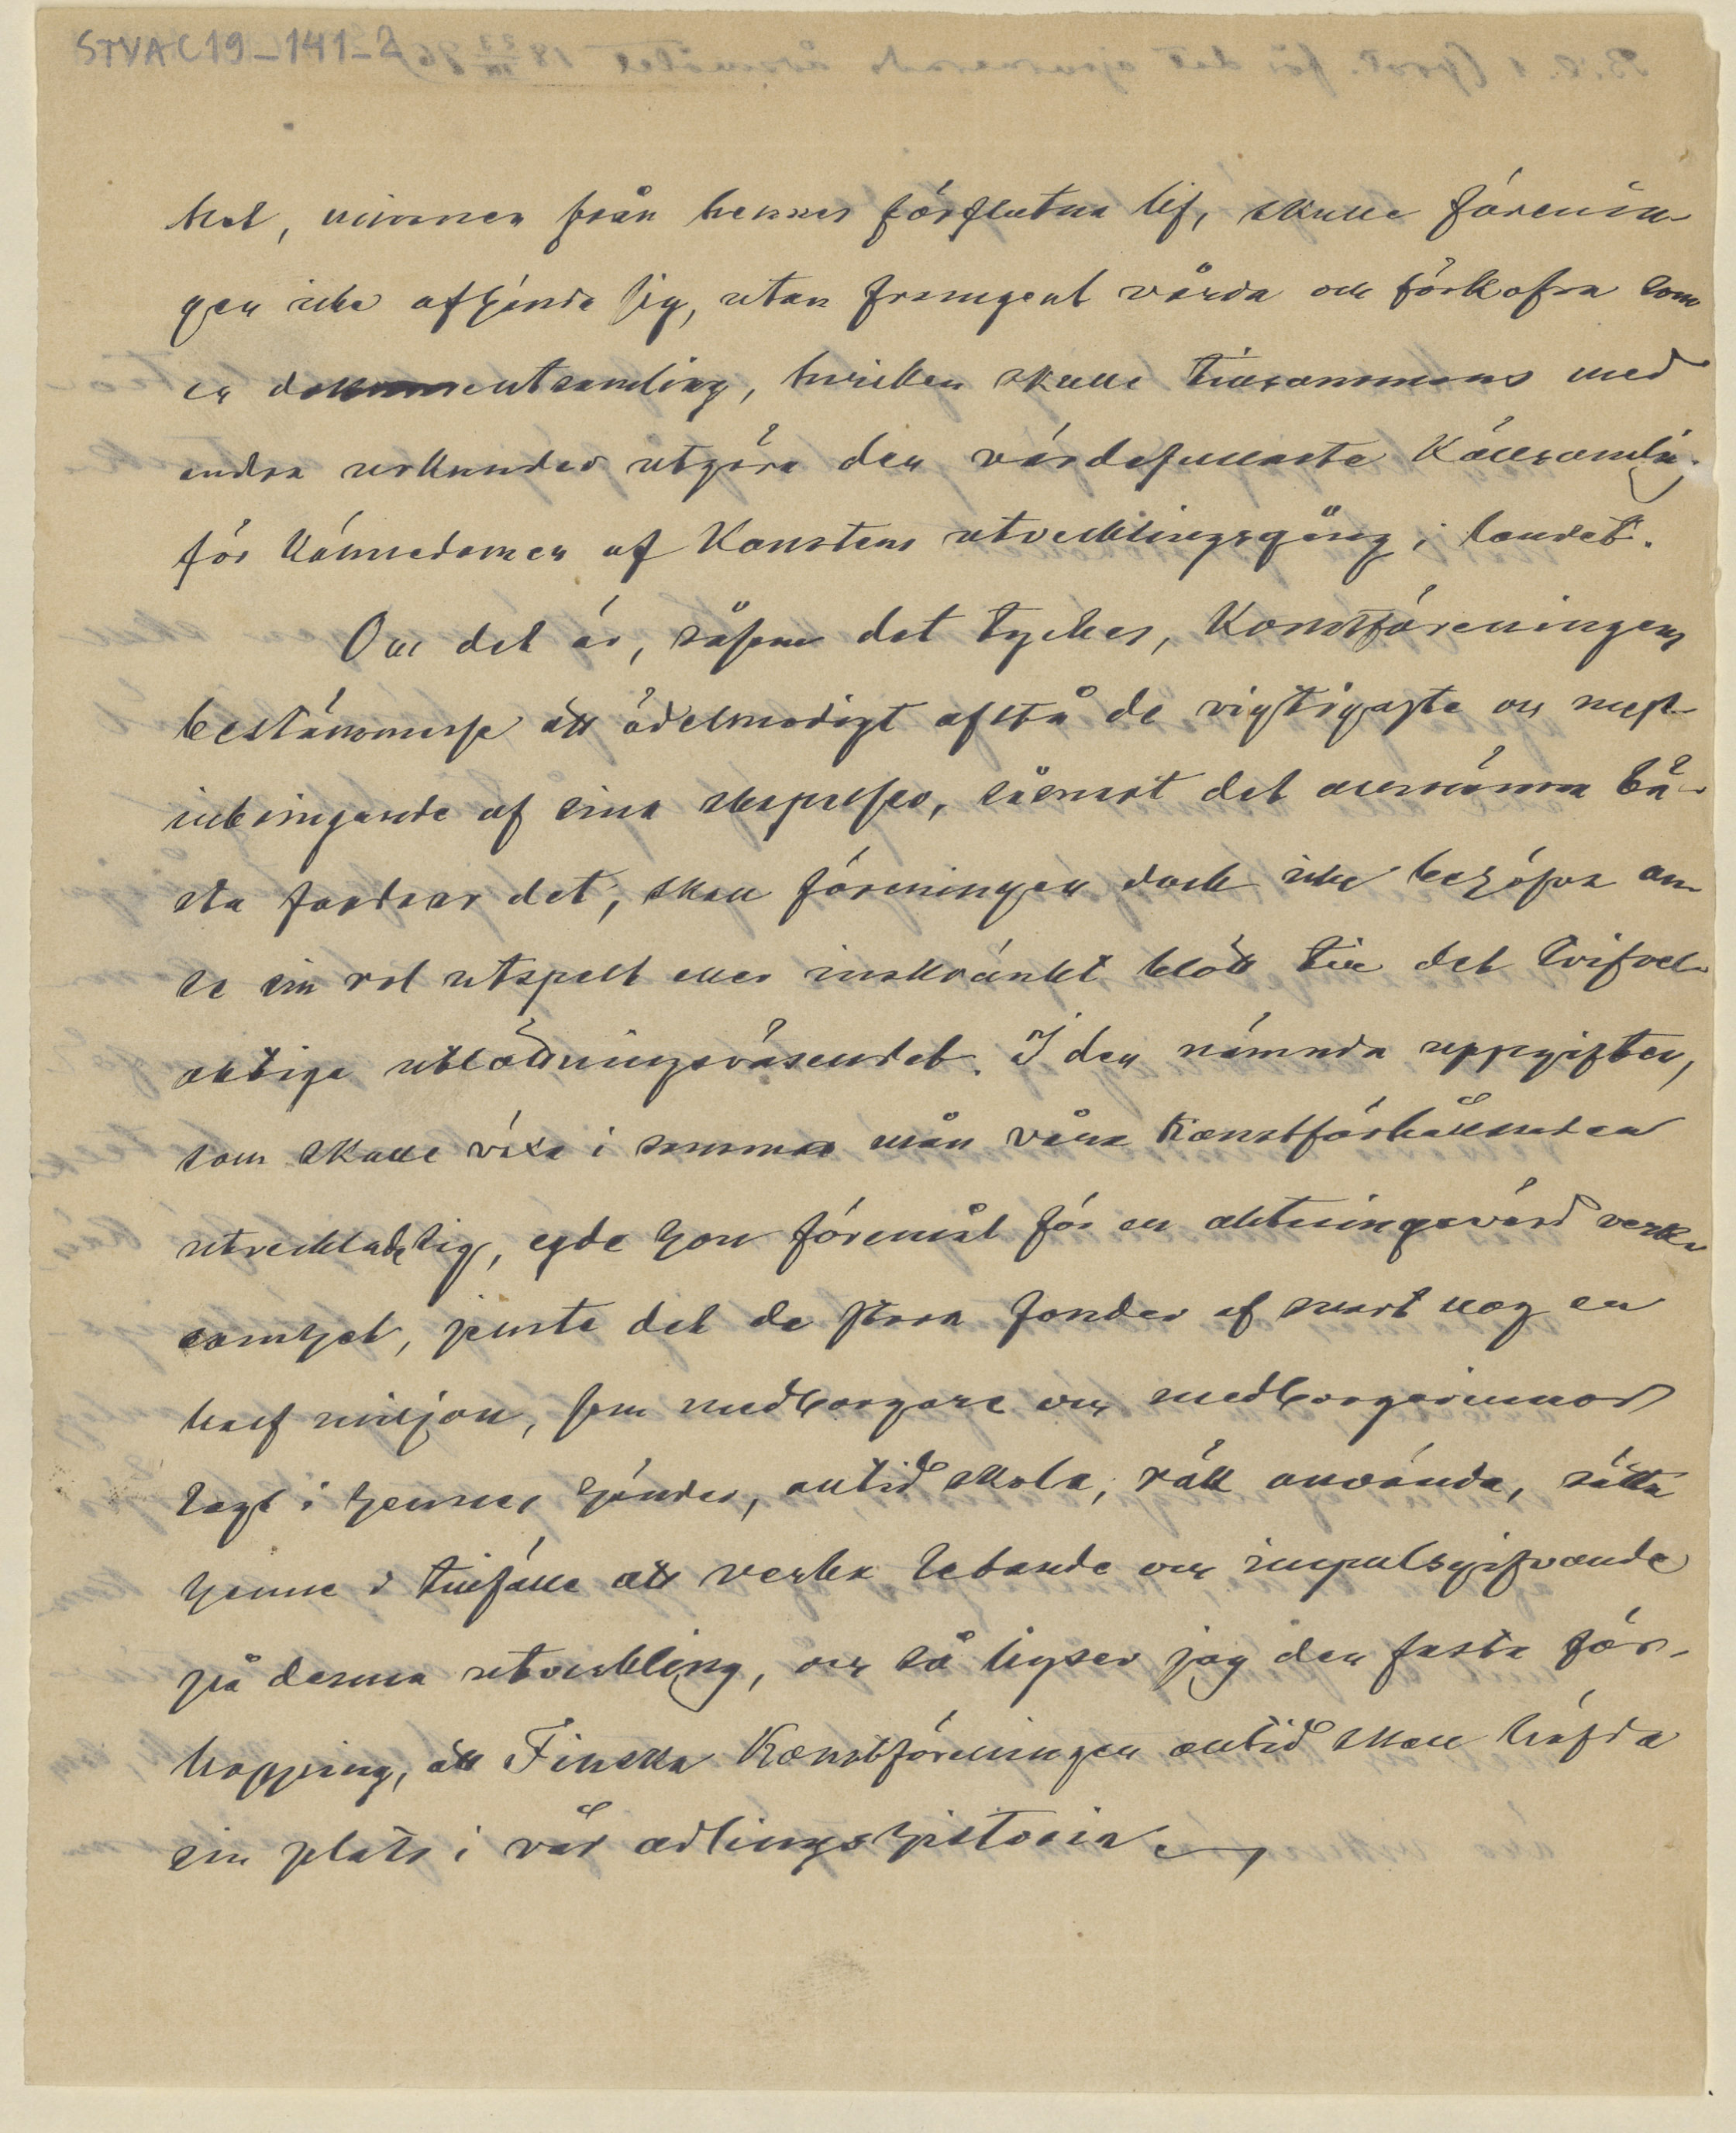 STVAC19-141-2
het, minnen från hennes förflutna lif, skulle förenin-
gen icke afhända sig, utan framgent vårda och förkofra som
en dokumentsamling, hvilken skulle tillsammans med
andra urkunder utgöra den värdefullaste källsamling
för kännedomen af konstens utvecklingsgång i landet.
Om det är, såsom det tyckes, Konstföreningens
bestämmelse att ädelmodigt afstå de vigtigaste och mest
inbringande af sina skapelser, såsnart det allmänna bä-
sta fordrar det, skall föreningen dock icke behöfva an-
se sin rol utspelt eller inskränkt blott till det tvifvel-
aktiga utlottningsväsendet. I den nämnda uppgiften,
som skulle växa i samma mån våra konstförhållanden
utvecklade sig, egde hon föremål för en aktningsvärd verk-
samhet, jemte det de stora fonder af snart nog en
half miljon, som medborgare och medborgarinnor
lagt i hennes händer, alltid skola, rätt använda, sätta
henne i tillfälle att verka ledande och impulsgifvande
på denna utveckling, och så hyser jag den fasta för-
hoppning, att Finska Konstföreningen alltid skall häfda
sin plats i vår odlingshistoria.